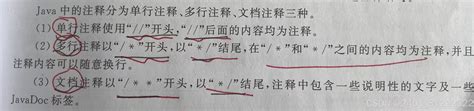 Java 中的注释分为单行注释、多行注释、文档注释三种。
(1) 单行注释使用“//”开头,“//”后面的内容均为注释。
(2) 多行注释以“/*”开头,以“*/”结尾,在“/*”和“*/”之间的内容均为注释,并且
注释内容可以随意换行。
(3) 文档注释以“/**”开头,以“*/”结尾,注释中包含一些说明性的文字及一些
JavaDoc 标签。